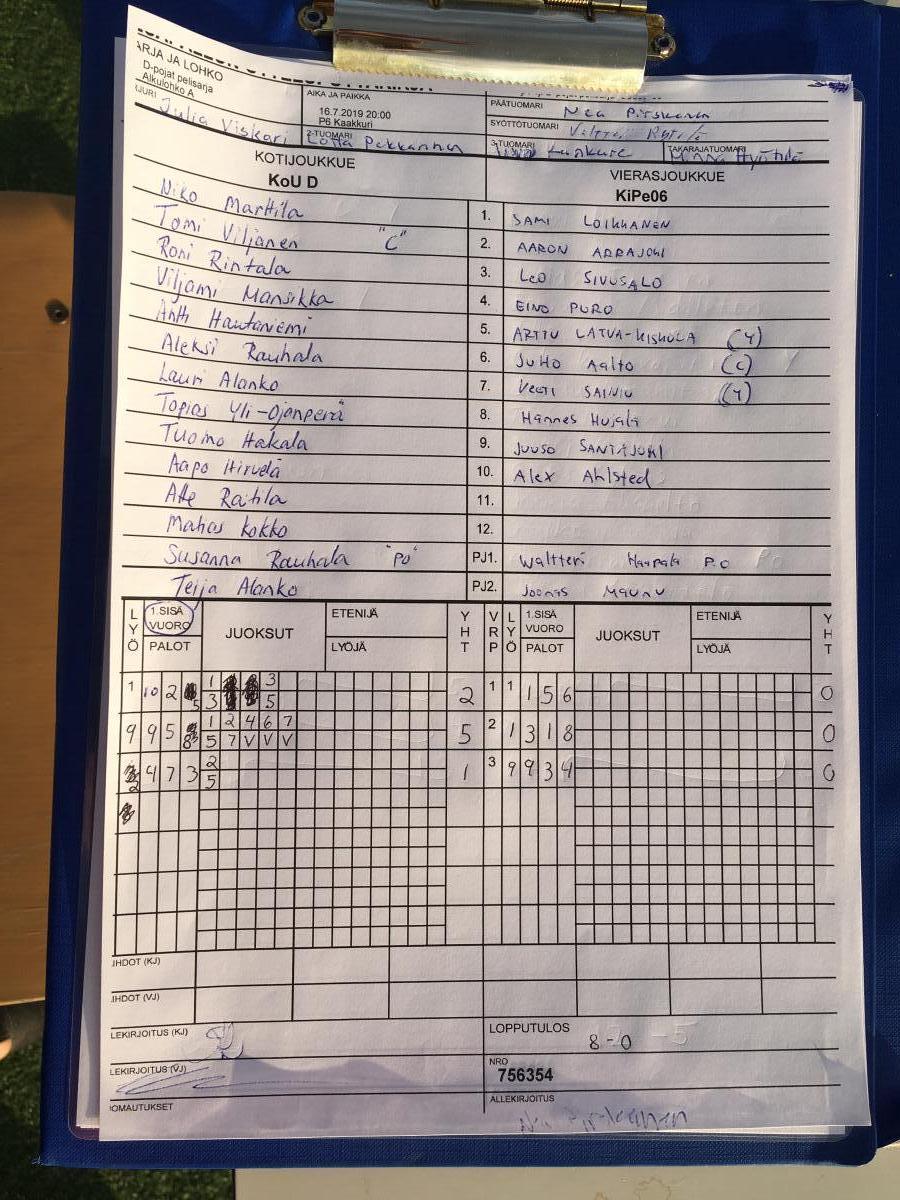 ARJA JA LOHKO
D-pojat pelisarja
Alkulohko A
AIKA JA PAIKKA
16.7.2019 20:00
P6 Kaakkuri
PÄÄTUOMARI
SYÖTTÖTUOMARI
JURI Julia Viskari
2-TUOMARI Lotta Pekkarinen
3-TUOMARI
TAKARAJATUOMARI
KOTIJOUKKUE
KoU D
VIERASJOUKKUE
KiPe06
Niko Marttila 1. SAMI LOIKKANEN
Tomi Viljanen "C" 2. AARON ARRAJOKI
Roni Rintala 3. LEO SIVUSALO
Viljami Mansikka 4. EINO PURO
Antti Hautaniemi 5. ARTTU LATVA-KISKOLA (Y)
Aleksi Rauhala 6. JUHO AALTO (C)
Lauri Alanko 7. VEETI SAINIO (Y)
Topias Yli-Ojanperä 8. Hannes Hujala
Tuomo Hakala 9. JUUSO SANTAJOKI
Aapo Hirvelä 10. Alex Ahlsted
Atte Raitila 11.
Kokko 12.
Susanna Rauhala "PO" PJ1. Waltteri Haapala P.O
Teija Alanko PJ2. Joonas Maunu
LYÖ 1.SISÄ VUORO PALOT JUOKSUT ETENIJÄ LYÖJÄ YHT VRP LYÖ 1.SISÄ VUORO PALOT JUOKSUT ETENIJÄ LYÖJÄ YHT
1 10 2 5 1 3 2 1 1 1 5 6 0
3 5
9 9 5 8 1 2 4 6 7 5 2 1 3 1 8 0
5 7 V V V
2 4 7 3 2 1 3 9 9 3 4 0
5
IHDOT (KJ)
IHDOT (VJ)
LEKIRJOITUS (KJ)
LOPPUTULOS
8-0
LEKIRJOITUS (VJ)
NRO
756354
OMAUTUKSET
ALLEKIRJOITUS